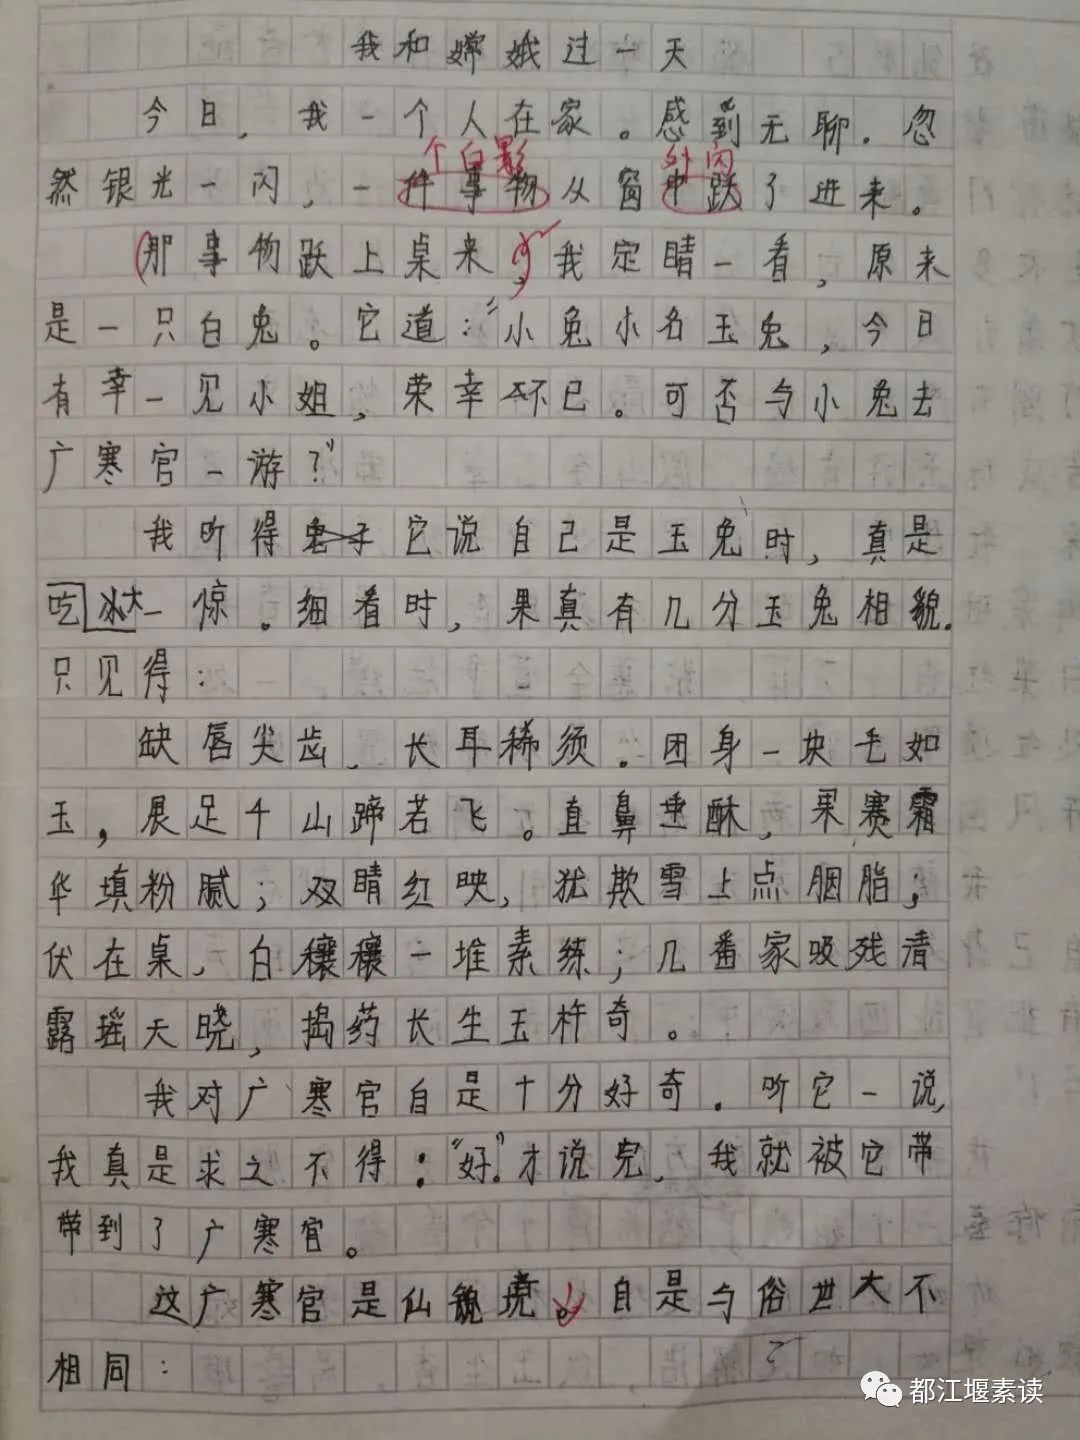 我和嫦娥过一天
今日，我一个人在家。感到无聊.忽
个白影 外闪
然银光一闪，一件事物从窗中跃了进来。
那事物跃上桌来，我定睛一看，原来
是一只白兔。它道：“小兔小名玉兔，今日
有幸一见小姐，荣幸不已。可否与小兔去
广寒官一游？”
我听得它说自己是玉兔时，真是
吃大一惊.细看时，果真有几分玉兔相貌.
只见得：
缺唇尖齿、长耳稀须.团身一块毛如
玉，展足千山蹄若飞。直鼻垂酥，果赛霜
华填粉腻；双睛红映，犹欺雪上点胭脂；
伏在桌、白穰穰一堆素练；几番家吸残清
露瑶天晓，捣药长生玉杵奇。
我对广寒官自是十分好奇.听它一说，
我真是求之不得：“好.”才说完，我就被它带
带到了广寒官。
这广寒官是仙境。自是与俗世大不
相同：
都江堰素读